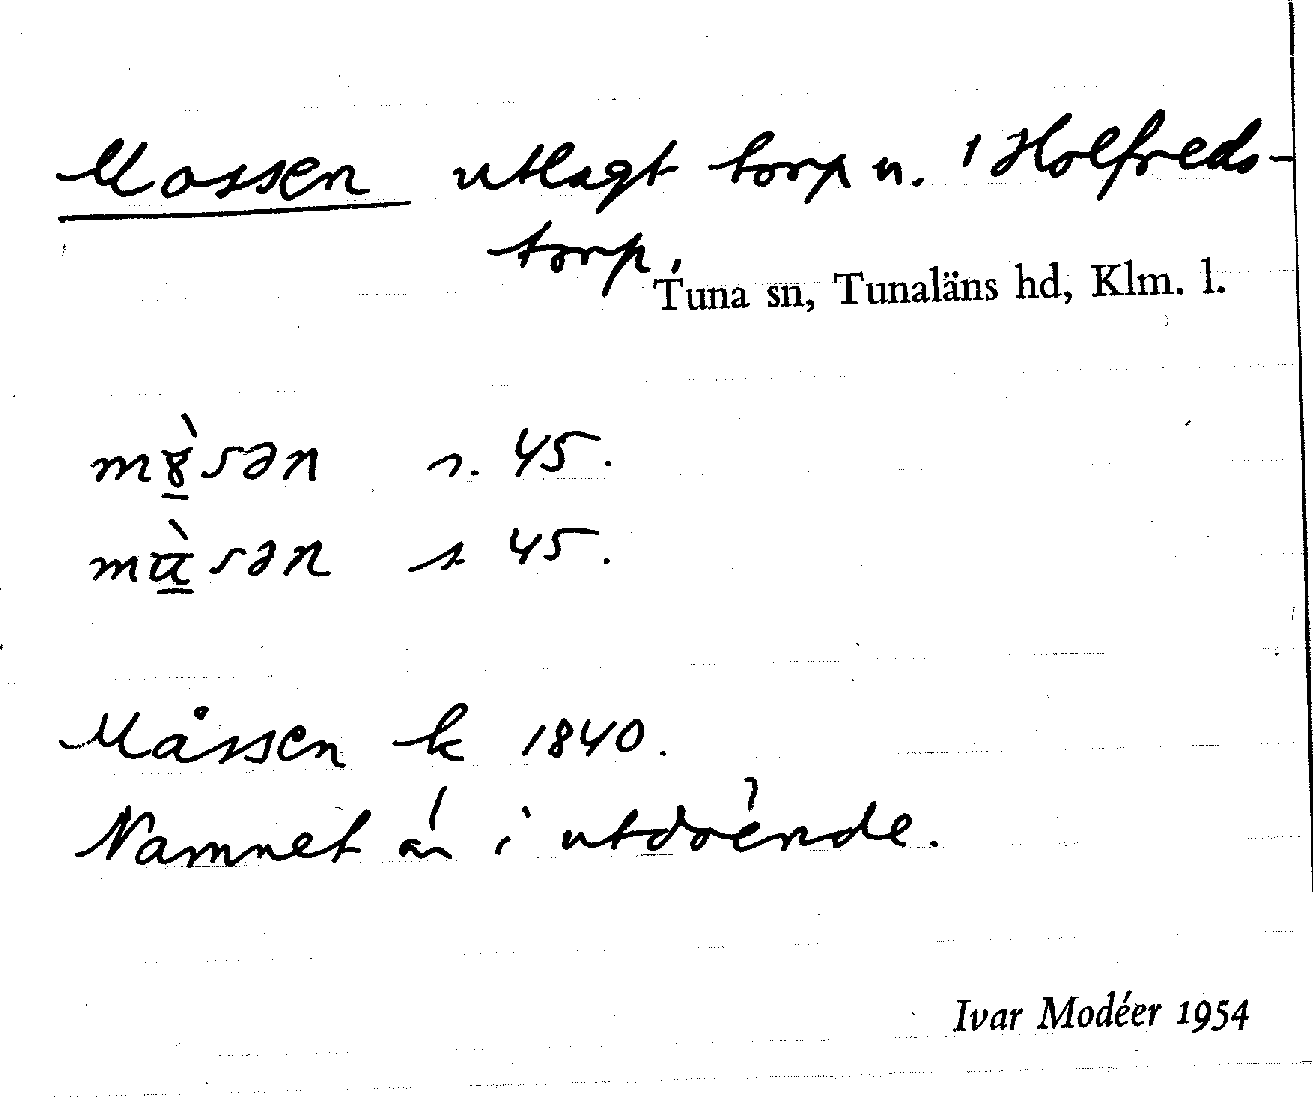 Mossen utlagt torp n. 1 Holfreds-
torp,
Tuna sn, Tunaläns hd, Klm. l.
s. 45.
s 45.
Måssen k 1840.
Namnet är i utdöende.
Ivar Modéer 1954